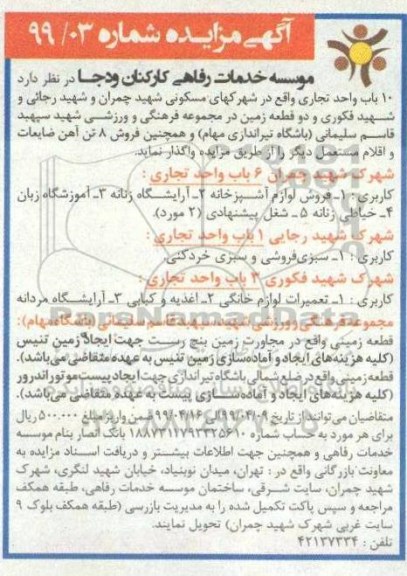 آگهی مزایده شماره ۹۹/۰۳
موسسه خدمات رفاهی کارکنان ودجا در نظر دارد
۱۰ باب واحد تجاری واقع در شهرکهای مسکونی شهید چمران و شهید رجائی و
شهید فکوری و دو قطعه زمین در مجموعه فرهنگی و ورزشی شهید سپهبد
قاسم سلیمانی (باشگاه تیراندازی مهام) و همچنین فروش ۸ تن آهن ضایعات
و اقلام مستعمل دیگر را از طریق مزایده واگذار نماید.
شهرک شهید چمران ۶ باب واحد تجاری :
کاربری : ۱- فروش لوازم آشپزخانه ۲- آرایشگاه زنانه ۳- آموزشگاه زبان
۴- خیاطی زنانه ۵- شغل پیشنهادی (۲ مورد).
شهرک شهید رجایی ۱ باب واحد تجاری :
کاربری : ۱- سبزی‌فروشی و سبزی خردکنی
شهرک شهید فکوری ۳ باب واحد تجاری :
کاربری : ۱- تعمیرات لوازم خانگی ۲- اغذیه و کبابی ۳- آرایشگاه مردانه
مجموعه فرهنگی و ورزشی شهید سپهبد قاسم سلیمانی (باشگاه مهام):
قطعه زمینی واقع در مجاورت زمین پنج رست جهت ایجاد زمین تنیس
(کلیه هزینه‌های ایجاد و آماده‌سازی زمین تنیس به عهده متقاضی می‌باشد).
قطعه زمینی واقع در ضلع شمالی باشگاه تیراندازی جهت ایجاد پیست موتور اندرور
(کلیه هزینه‌های ایجاد و آماده‌سازی پیست به عهده متقاضی می‌باشد).
متقاضیان می‌توانند از تاریخ ۹۹/۰۴/۰۹ لغایت ۹۹/۰۴/۱۶ ضمن واریز مبلغ ۵۰۰.۰۰۰ ریال
برای هر مورد به حساب شماره بانک انصار بنام موسسه
خدمات رفاهی و همچنین جهت اطلاعات بیشتر و دریافت اسناد مزایده به
معاونت بازرگانی واقع در : تهران، میدان نوبنیاد، خیابان شهید لنگری، شهرک
شهید چمران، سایت شرقی، ساختمان موسسه خدمات رفاهی، طبقه همکف
مراجعه و سپس پاکت تکمیل شده را به مدیریت بازرسی (طبقه همکف بلوک ۹
سایت غربی شهرک شهید چمران) تحویل نمایند.
تلفن : ۴۲۱۳۷۳۳۴
ParsNamadData